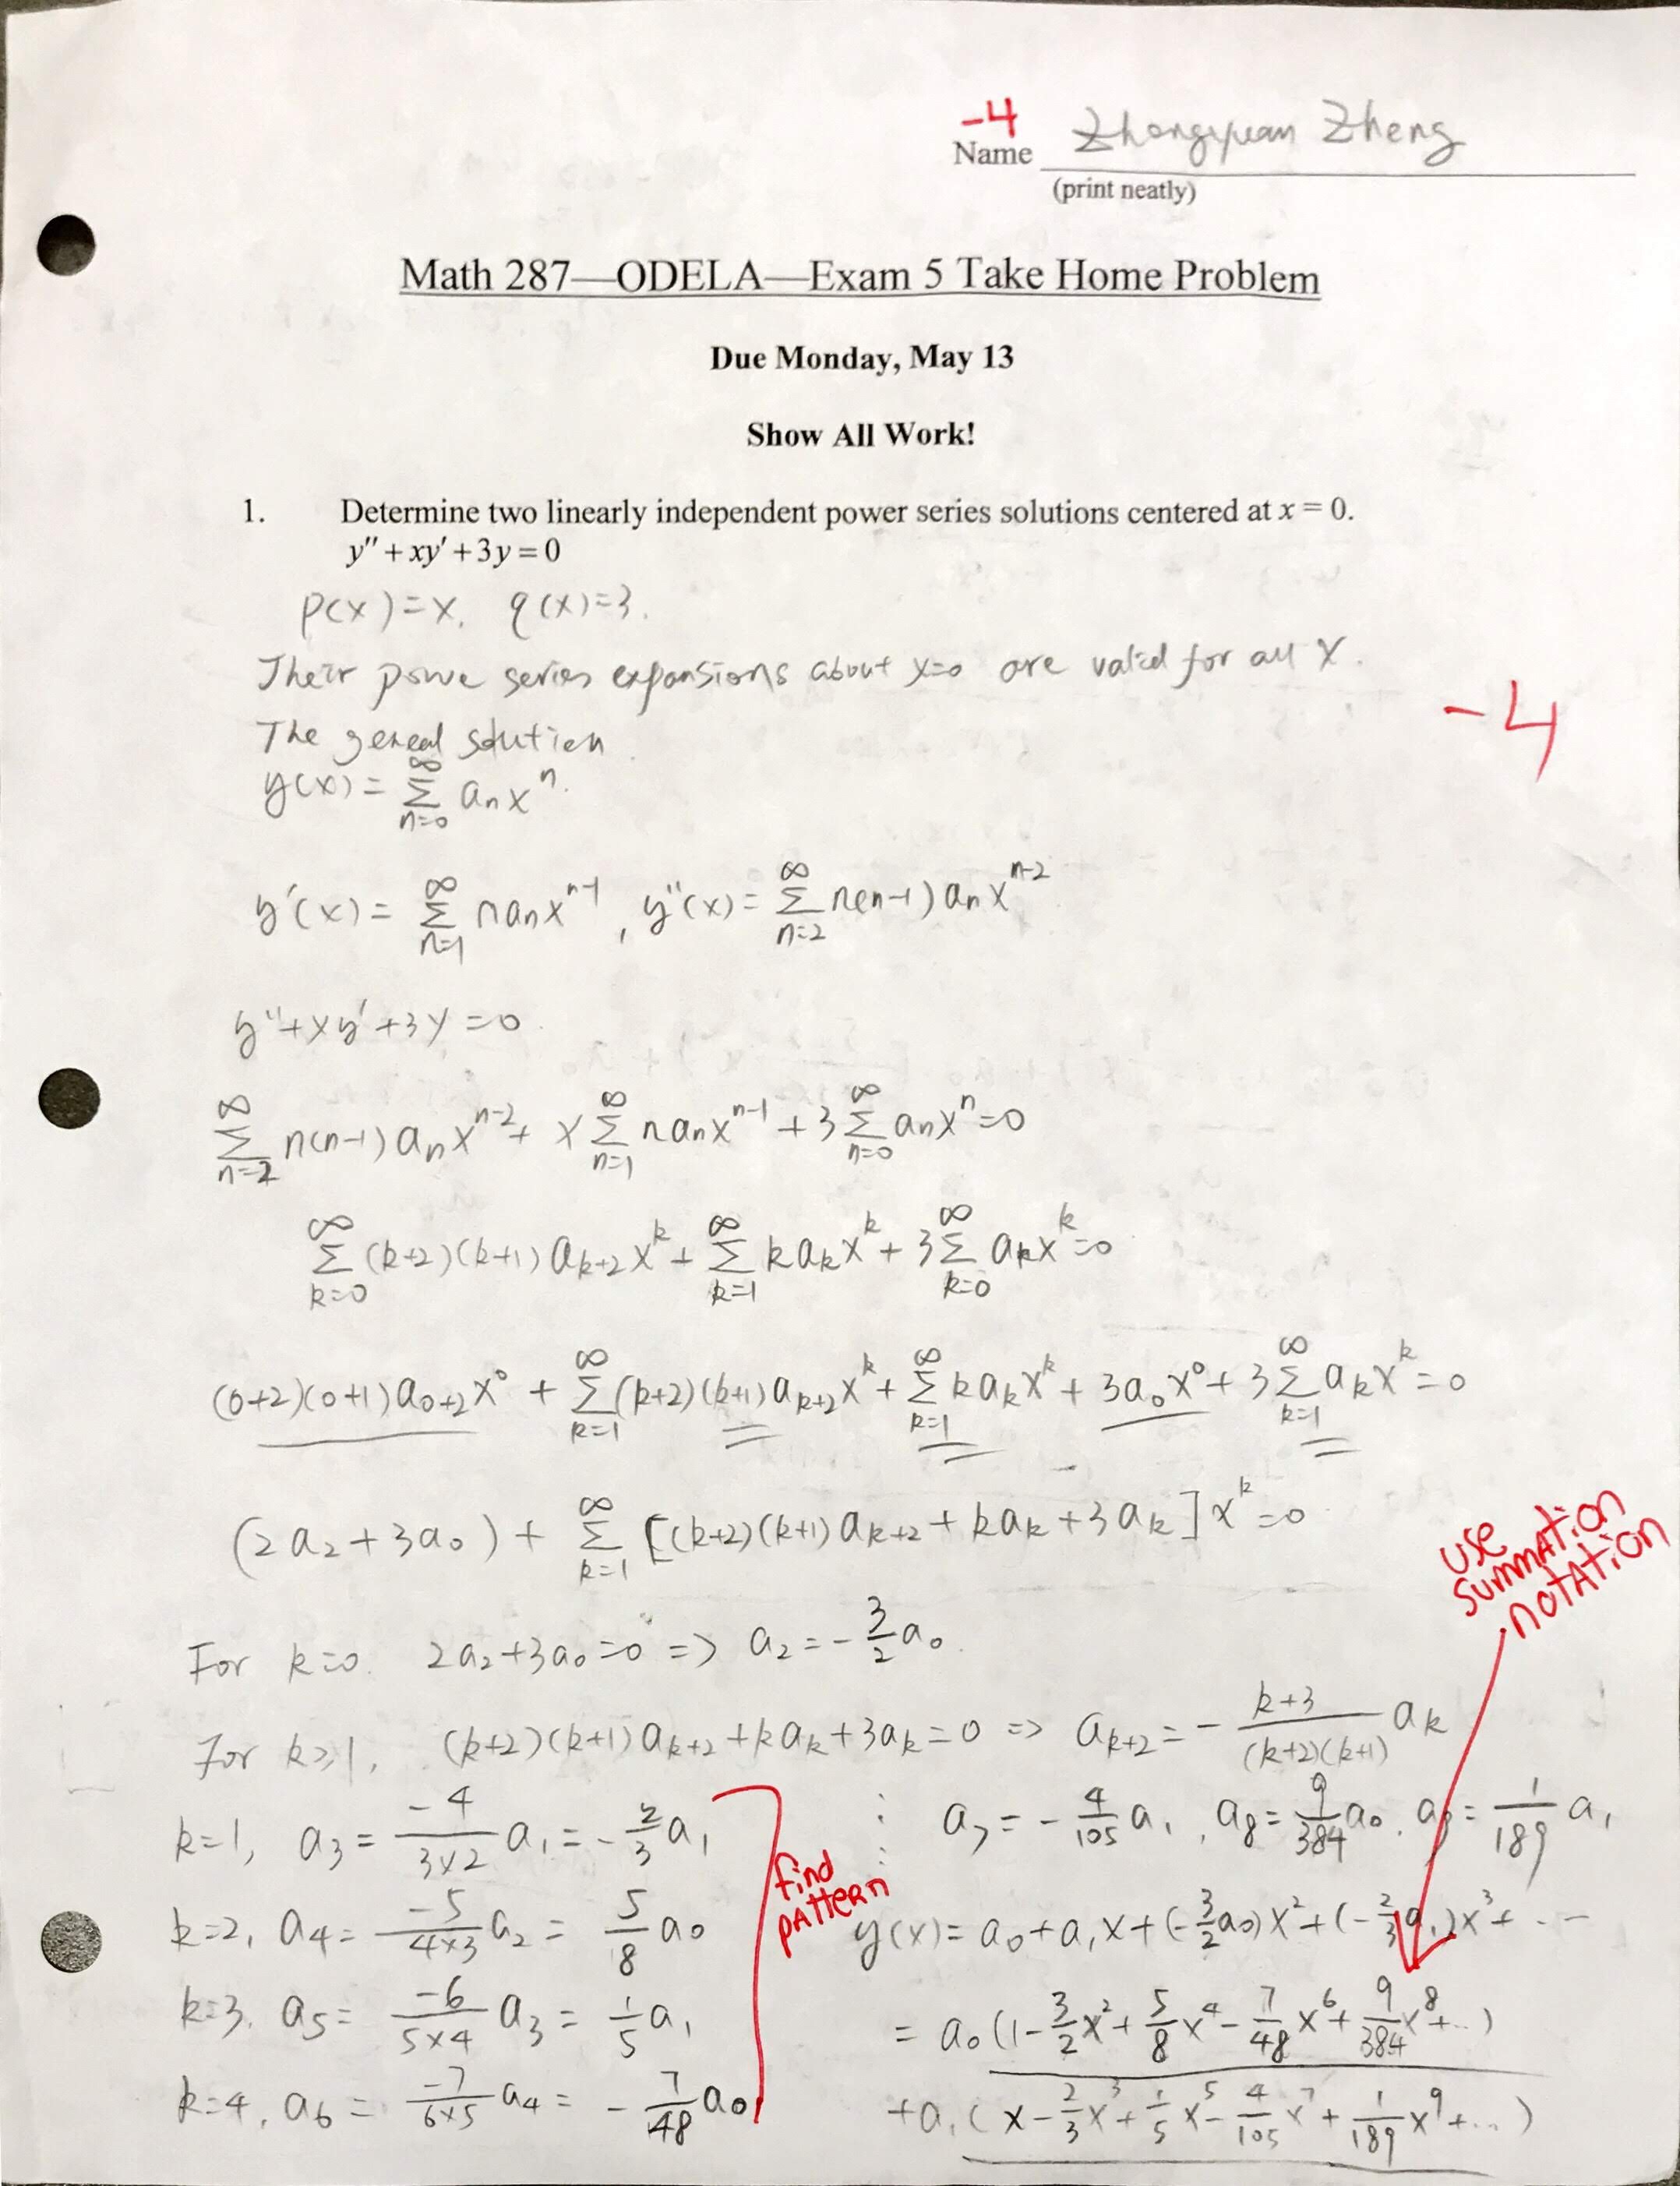 -4
Name Zhongyuan Zheng
(print neatly)
Math 287—ODELA—Exam 5 Take Home Problem
Due Monday, May 13
Show All Work!
1. Determine two linearly independent power series solutions centered at x = 0.
y″ + xy′ + 3y = 0
p(x) = x, q(x)=3.
Their powe series expansions about x=0 are valid for all x.
-4
The geneal solution
y(x) = ∑_{n=0}^{∞} a_n x^n.
y'(x) = ∑_{n=1}^{∞} n a_n x^{n-1}, y''(x) = ∑_{n=2}^{∞} n(n-1) a_n x^{n-2}
y''+xy'+3y=0.
∑_{n=2}^{∞} n(n-1) a_n x^{n-2} + x ∑_{n=1}^{∞} n a_n x^{n-1} + 3 ∑_{n=0}^{∞} a_n x^n = 0
∑_{k=0}^{∞} (k+2)(k+1) a_{k+2} x^k + ∑_{k=1}^{∞} k a_k x^k + 3 ∑_{k=0}^{∞} a_k x^k = 0
(0+2)(0+1) a_{0+2} x^0 + ∑_{k=1}^{∞} (k+2)(k+1) a_{k+2} x^k + ∑_{k=1}^{∞} k a_k x^k + 3a_0 x^0 + 3 ∑_{k=1}^{∞} a_k x^k = 0
(2a_2+3a_0) + ∑_{k=1}^{∞} [(k+2)(k+1) a_{k+2} + k a_k + 3a_k] x^k = 0
use
summation
notation
For k=0. 2a_2+3a_0=0 => a_2 = -3/2 a_0.
For k≥1, (k+2)(k+1) a_{k+2} + k a_k + 3a_k = 0 => a_{k+2} = - (k+3)/((k+2)(k+1)) a_k
k=1, a_3 = -4/(3×2) a_1 = -2/3 a_1
k=2, a_4 = -5/(4×3) a_2 = 5/8 a_0
k=3. a_5 = -6/(5×4) a_3 = 1/5 a_1
k=4, a_6 = -7/(6×5) a_4 = -7/48 a_0
find
pattern
⋮ a_7 = -4/105 a_1, a_8 = 9/384 a_0. a_9 = 1/189 a_1
y(x) = a_0 + a_1 x + (-3/2 a_0) x^2 + (-2/3 a_1) x^3 + ...
= a_0 (1 - 3/2 x^2 + 5/8 x^4 - 7/48 x^6 + 9/384 x^8 + ..)
+ a_1 (x - 2/3 x^3 + 1/5 x^5 - 4/105 x^7 + 1/189 x^9 + ...)